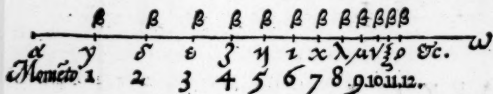 β β β β β β β β β β β
α γ δ ε ζ η ι κ λ μ ν ξ ο &c. ω
Momẽto 1 2 3 4 5 6 7 8 9.10.11.12.